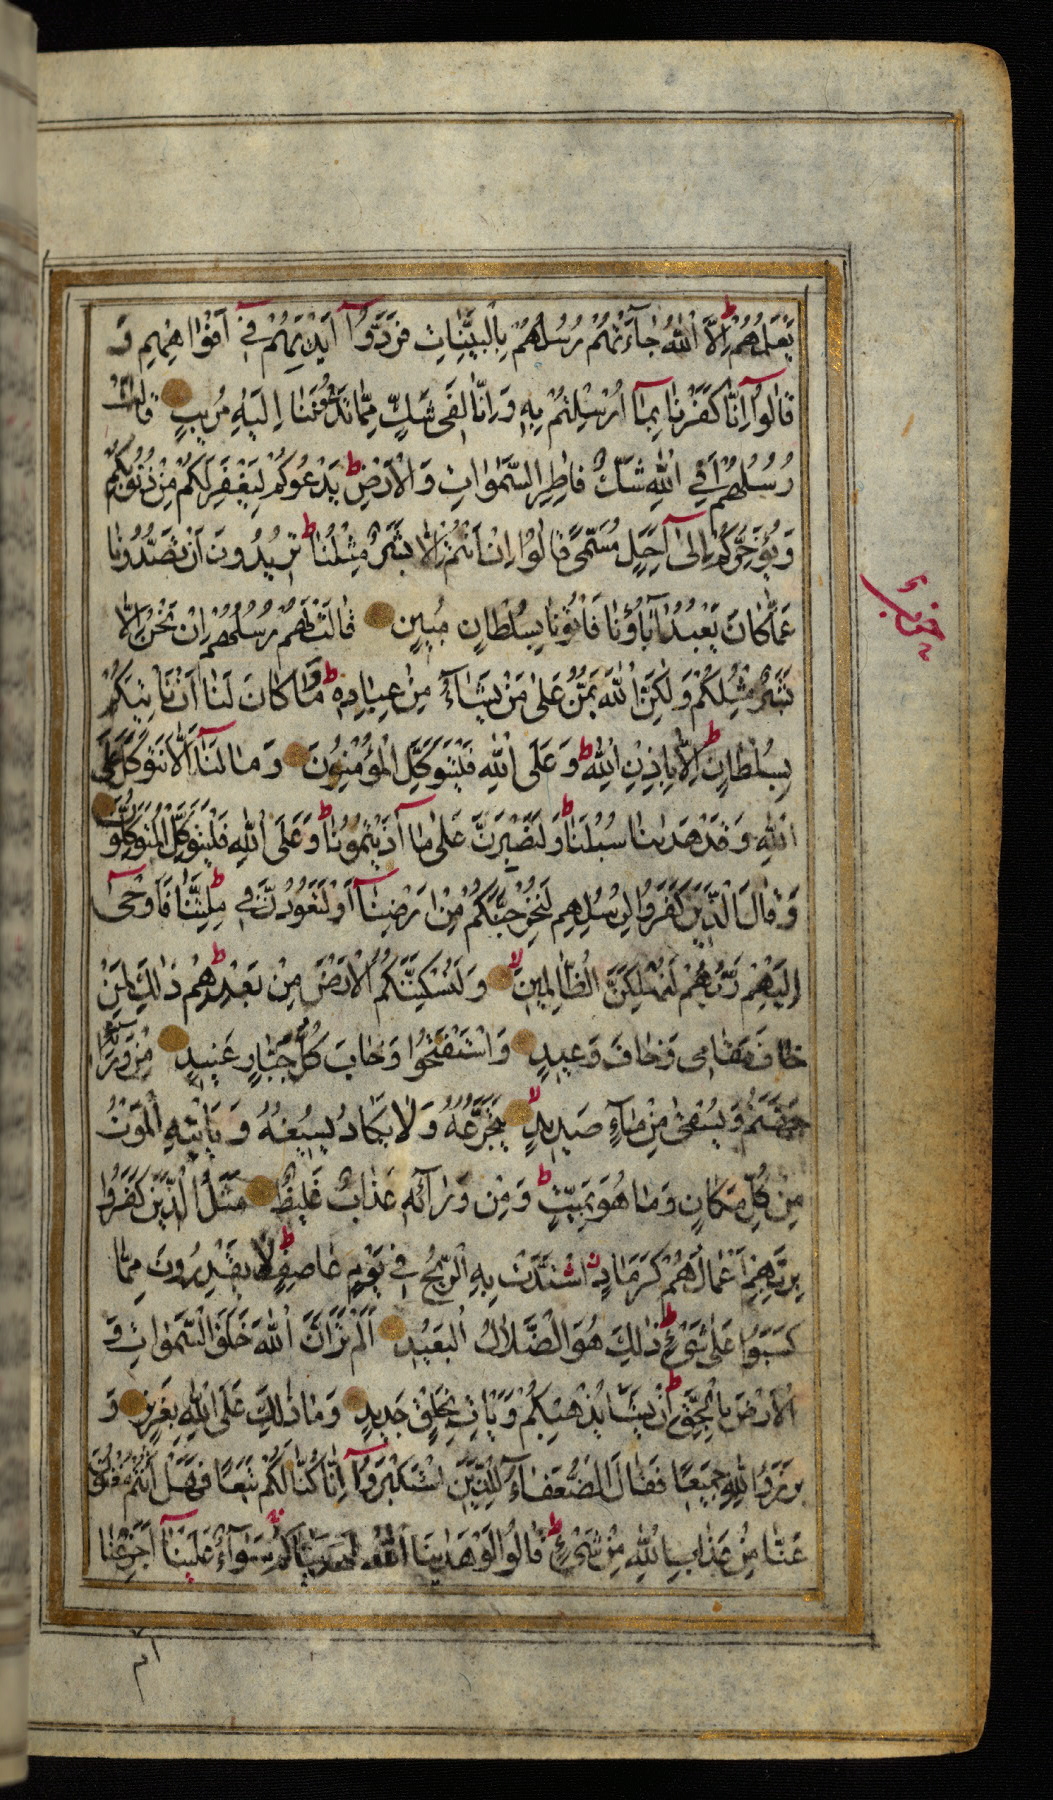 يَعْلَمُهُمْ اِلَّا اللّٰهُ جَاۤءَتْهُمْ رُسُلُهُمْ بِالْبَيِّنَاتِ فَرَدُّوا اَيْدِيَهُمْ فِي اَفْوَاهِهِمْ وَ
قَالُوا اِنَّا كَفَرْنَا بِمَا اُرْسِلْتُمْ بِهِ وَاِنَّا لَفِي شَكٍّ مِمَّا تَدْعُونَنَا اِلَيْهِ مُرِيبٍ قَالَتْ
رُسُلُهُمْ اَفِي اللّٰهِ شَكٌّ فَاطِرِ السَّمٰوَاتِ وَالْاَرْضِ ط يَدْعُوكُمْ لِيَغْفِرَ لَكُمْ مِنْ ذُنُوبِكُمْ
وَيُؤَخِّرَكُمْ اِلٰى اَجَلٍ مُسَمًّى قَالُوا اِنْ اَنْتُمْ اِلَّا بَشَرٌ مِثْلُنَا ط تُرِيدُونَ اَنْ تَصُدُّونَا
عَمَّا كَانَ يَعْبُدُ اٰبَاؤُنَا فَأْتُونَا بِسُلْطَانٍ مُبِينٍ قَالَتْ لَهُمْ رُسُلُهُمْ اِنْ نَحْنُ اِلَّا
بَشَرٌ مِثْلُكُمْ وَلٰكِنَّ اللّٰهَ يَمُنُّ عَلٰى مَنْ يَشَاۤءُ مِنْ عِبَادِهِ ط وَمَا كَانَ لَنَا اَنْ نَأْتِيَكُمْ
بِسُلْطَانٍ اِلَّا بِاِذْنِ اللّٰهِ ط وَعَلَى اللّٰهِ فَلْيَتَوَكَّلِ الْمُؤْمِنُونَ وَمَا لَنَا اَلَّا نَتَوَكَّلَ عَلَى
اللّٰهِ وَقَدْ هَدٰينَا سُبُلَنَا ط وَلَنَصْبِرَنَّ عَلٰى مَا اٰذَيْتُمُونَا ط وَعَلَى اللّٰهِ فَلْيَتَوَكَّلِ الْمُتَوَكِّلُونَ
وَقَالَ الَّذِينَ كَفَرُوا لِرُسُلِهِمْ لَنُخْرِجَنَّكُمْ مِنْ اَرْضِنَا اَوْ لَتَعُودُنَّ فِي مِلَّتِنَا ط فَاَوْحٰى
اِلَيْهِمْ رَبُّهُمْ لَنُهْلِكَنَّ الظَّالِمِينَ لا وَلَنُسْكِنَنَّكُمُ الْاَرْضَ مِنْ بَعْدِهِمْ ط ذٰلِكَ لِمَنْ
خَافَ مَقَامِي وَخَافَ وَعِيدِ وَاسْتَفْتَحُوا وَخَابَ كُلُّ جَبَّارٍ عَنِيدٍ مِنْ وَرَاۤئِهِ
جَهَنَّمُ وَيُسْقٰى مِنْ مَاۤءٍ صَدِيدٍ لا يَتَجَرَّعُهُ وَلَا يَكَادُ يُسِيغُهُ وَيَأْتِيهِ الْمَوْتُ
مِنْ كُلِّ مَكَانٍ وَمَا هُوَ بِمَيِّتٍ ط وَمِنْ وَرَاۤئِهِ عَذَابٌ غَلِيظٌ مَثَلُ الَّذِينَ كَفَرُوا
بِرَبِّهِمْ اَعْمَالُهُمْ كَرَمَادٍ اشْتَدَّتْ بِهِ الرِّيحُ فِي يَوْمٍ عَاصِفٍ ط لَا يَقْدِرُونَ مِمَّا
كَسَبُوا عَلٰى شَيْءٍ ط ذٰلِكَ هُوَ الضَّلَالُ الْبَعِيدُ اَلَمْ تَرَ اَنَّ اللّٰهَ خَلَقَ السَّمٰوَاتِ وَ
الْاَرْضَ بِالْحَقِّ ط اِنْ يَشَأْ يُذْهِبْكُمْ وَيَأْتِ بِخَلْقٍ جَدِيدٍ وَمَا ذٰلِكَ عَلَى اللّٰهِ بِعَزِيزٍ وَ
بَرَزُوا لِلّٰهِ جَمِيعًا فَقَالَ الضُّعَفَاۤءُ لِلَّذِينَ اسْتَكْبَرُوا اِنَّا كُنَّا لَكُمْ تَبَعًا فَهَلْ اَنْتُمْ مُغْنُونَ
عَنَّا مِنْ عَذَابِ اللّٰهِ مِنْ شَيْءٍ ط قَالُوا لَوْ هَدٰينَا اللّٰهُ لَهَدَيْنَاكُمْ ط سَوَاۤءٌ عَلَيْنَا اَجَزِعْنَا
ام